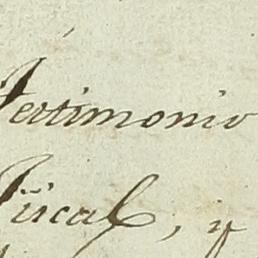 Testimonio
Fiscal, y